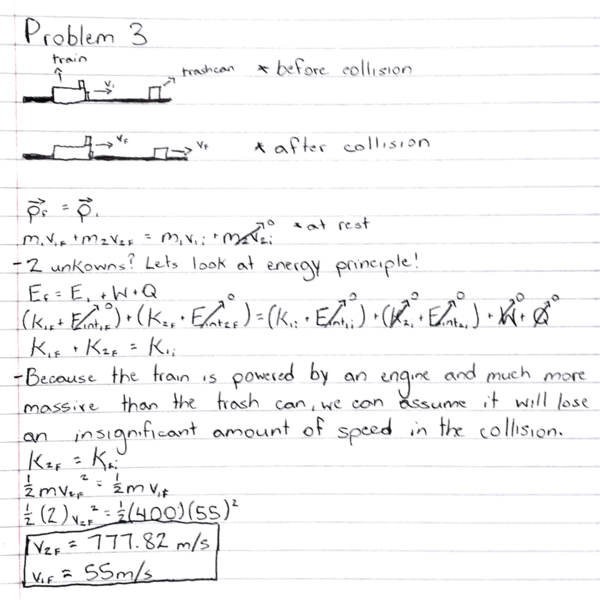 Problem 3
train
v₁
trashcan
* before collision
v_F
v_F
* after collision
p⃗_F = p⃗_i
m₁v₁F + m₂v₂F = m₁v₁i + m₂v₂i 0 * at rest
- 2 unkowns? Lets look at energy principle!
E_F = E_i + W + Q
(K₁F + E_int₁F 0) + (K₂F + E_int₂F 0) = (K₁i + E_int₁i 0) + (K₂i 0 + E_int₂i 0) + W 0 + Q 0
K₁F + K₂F = K₁i
- Because the train is powered by an engine and much more
massive than the trash can, we can assume it will lose
an insignificant amount of speed in the collision.
K₂F = K₁i
½mv₂F² = ½mv₁F
½(2)v₂F² = ½(400)(55)²
v₂F = 777.82 m/s
v₁F = 55m/s